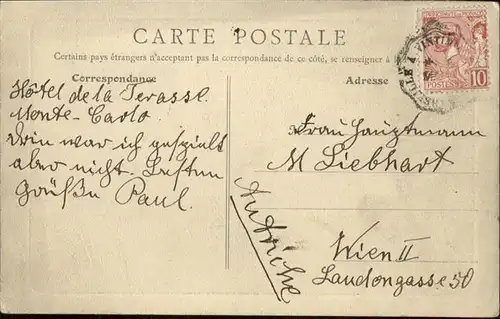 CARTE POSTALE
Certains pays étrangers n'acceptant pas la correspondance de ce côté, se renseigner à
Correspondance
Adresse
Hôtel de la Terasse
Monte-Carlo
war ich gespielt
aber nicht. Besten
Grüße Paul.
Frau Hauptmann
M Liebhart
Wien II
Laudongasse 50
Autriche
PRINCIPAUTE DE MONACO
POSTES 10